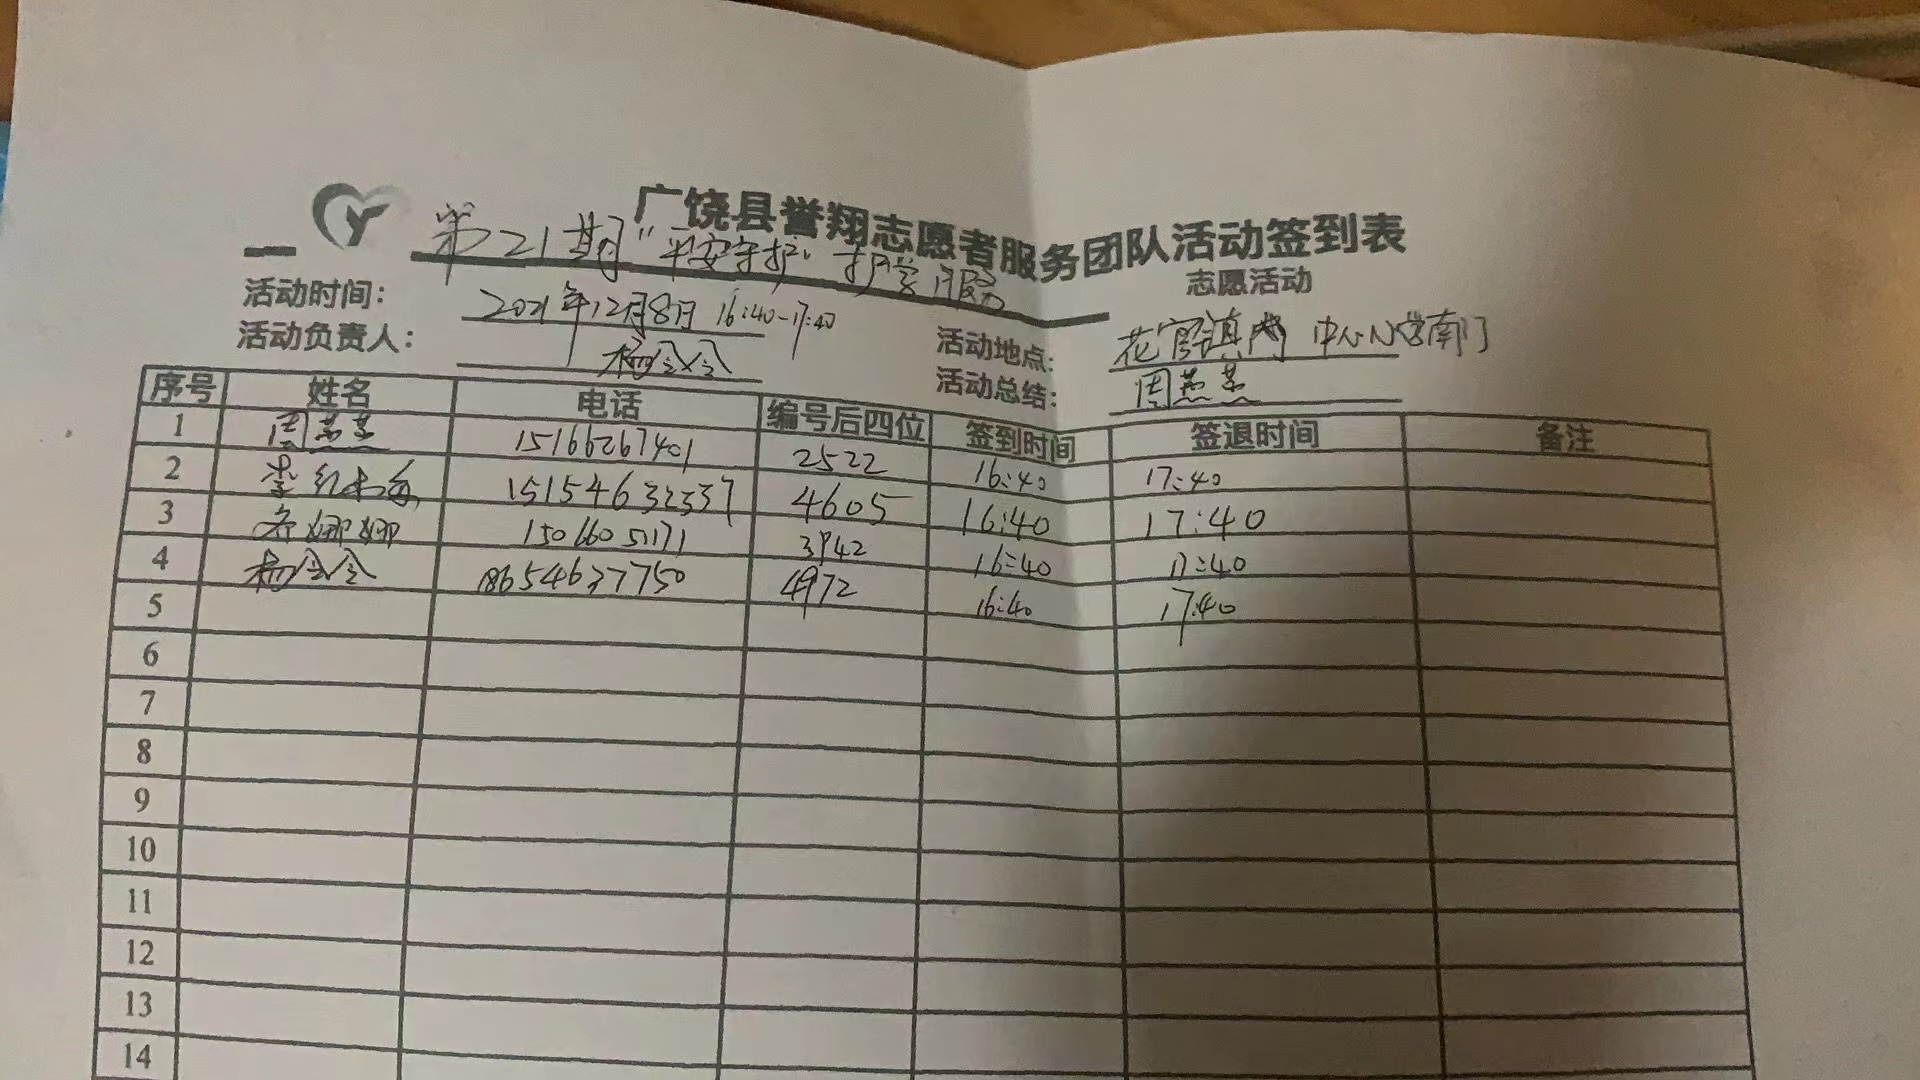 广饶县誉翔志愿者服务团队活动签到表
第21期"平安守护"护学服务 志愿活动
活动时间: 2021年12月8日 16:40-17:40 活动地点: 花官镇 中心小学南门
活动负责人: 杨令令 活动总结: 周燕燕
序号 姓名 电话 编号后四位 签到时间 签退时间 备注
1 周燕燕 15166267401 2522 16:40 17:40
2 李红 15154632337 4605 16:40 17:40
3 齐娜娜 15066051171 3942 16:40 17:40
4 杨令令 18654637750 4972 16:40 17:40
5
6
7
8
9
10
11
12
13
14